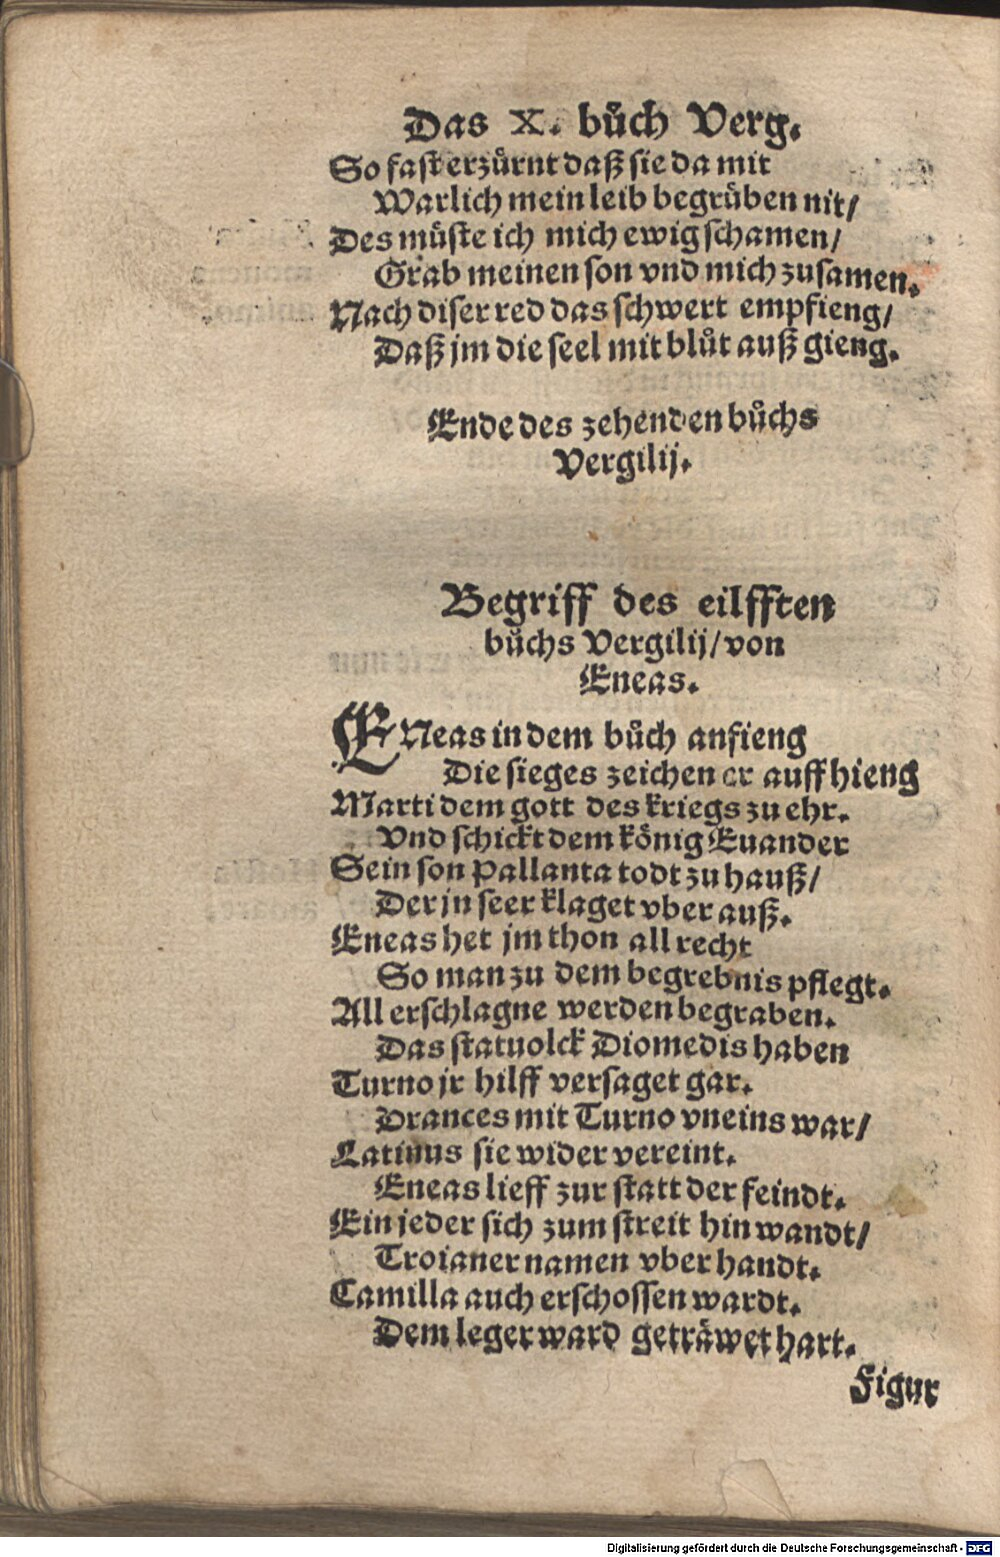 Das X. bůch Verg.
So fast erzürnt daß sie da mit
Warlich mein leib begrüben nit/
Des müste ich mich ewig schamen/
Grab meinen son vnd mich zusamen.
Nach diser red das schwert empfieng/
Daß jm die seel mit blůt auß gieng.
Ende des zehenden bůchs
Vergilij.
Begriff des eilfften
bůchs Vergilij/von
Eneas.
ENeas in dem bůch anfieng
Die sieges zeichen er auffhieng
Marti dem gott des kriegs zu ehr.
Vnd schickt dem König Euander
Sein son Pallanta todt zu hauß/
Der jn seer klaget vber auß.
Eneas het jm thon all recht
So man zu dem begrebnis pflegt.
All erschlagne werden begraben.
Das statuolck Diomedis haben
Turno jr hilff versaget gar.
Drances mit Turno vneins war/
Latinus sie wider vereint.
Eneas lieff zur statt der feindt.
Ein jeder sich zum streit hin wandt/
Troianer namen vber handt.
Camilla auch erschossen wardt.
Dem leger ward geträwet hart.
Figur
Digitalisierung gefördert durch die Deutsche Forschungsgemeinschaft - DFG